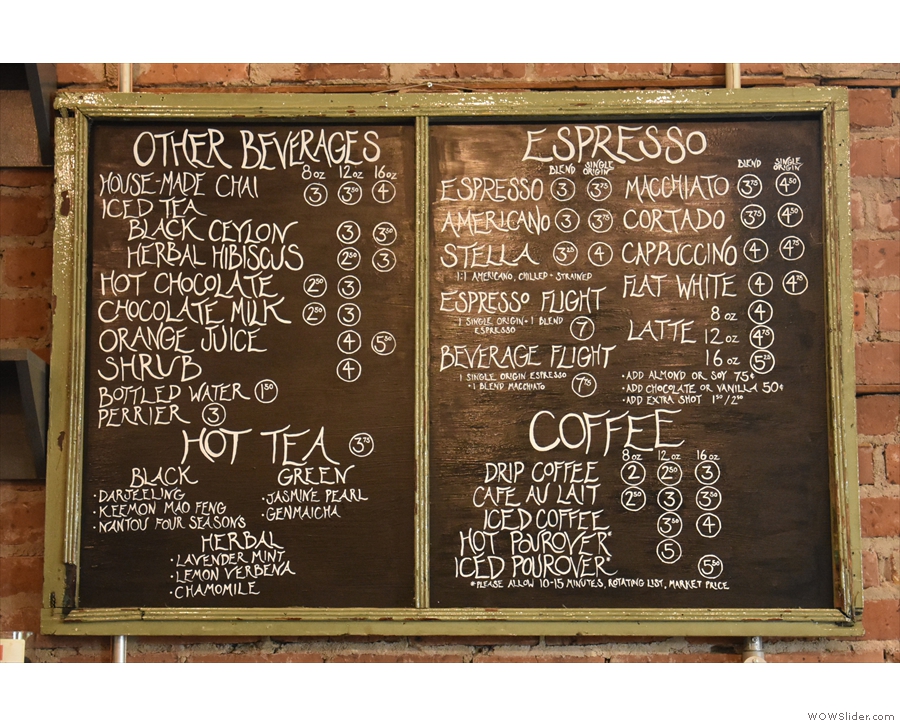 OTHER BEVERAGES
8 oz 12 oz 16 oz
HOUSE-MADE CHAI 3 3.50 4
ICED TEA
BLACK CEYLON 3 3.50
HERBAL HIBISCUS 2.50 3
HOT CHOCOLATE 2.50 3
CHOCOLATE MILK 2.50 3
ORANGE JUICE 4 5.50
SHRUB 4
BOTTLED WATER 1.50
PERRIER 3
HOT TEA 3.75
BLACK
· DARJEELING
· KEEMON MAO FENG
· NANTOU FOUR SEASONS
GREEN
· JASMINE PEARL
· GENMAICHA
HERBAL
· LAVENDER MINT
· LEMON VERBENA
· CHAMOMILE
ESPRESSO
BLEND SINGLE ORIGIN
ESPRESSO 3 3.75
AMERICANO 3 3.75
STELLA 3.25 4
1:1 AMERICANO, CHILLED + STRAINED
ESPRESSO FLIGHT
1 SINGLE ORIGIN + 1 BLEND
ESPRESSO 7
BEVERAGE FLIGHT
1 SINGLE ORIGIN ESPRESSO
+ 1 BLEND MACCHIATO 7.75
BLEND SINGLE ORIGIN
MACCHIATO 3.75 4.50
CORTADO 3.75 4.50
CAPPUCCINO 4 4.75
FLAT WHITE 4 4.75
LATTE
8 oz 4
12 oz 4.75
16 oz 5.25
· ADD ALMOND OR SOY 75¢
· ADD CHOCOLATE OR VANILLA 50¢
· ADD EXTRA SHOT 1.50/2.50
COFFEE
8 oz 12 oz 16 oz
DRIP COFFEE 2 2.50 3
CAFE AU LAIT 2.50 3 3.50
ICED COFFEE 3.50 4
HOT POUROVER* 5
ICED POUROVER 5.50
*PLEASE ALLOW 10-15 MINUTES, ROTATING LIST, MARKET PRICE
WOWSlider.com